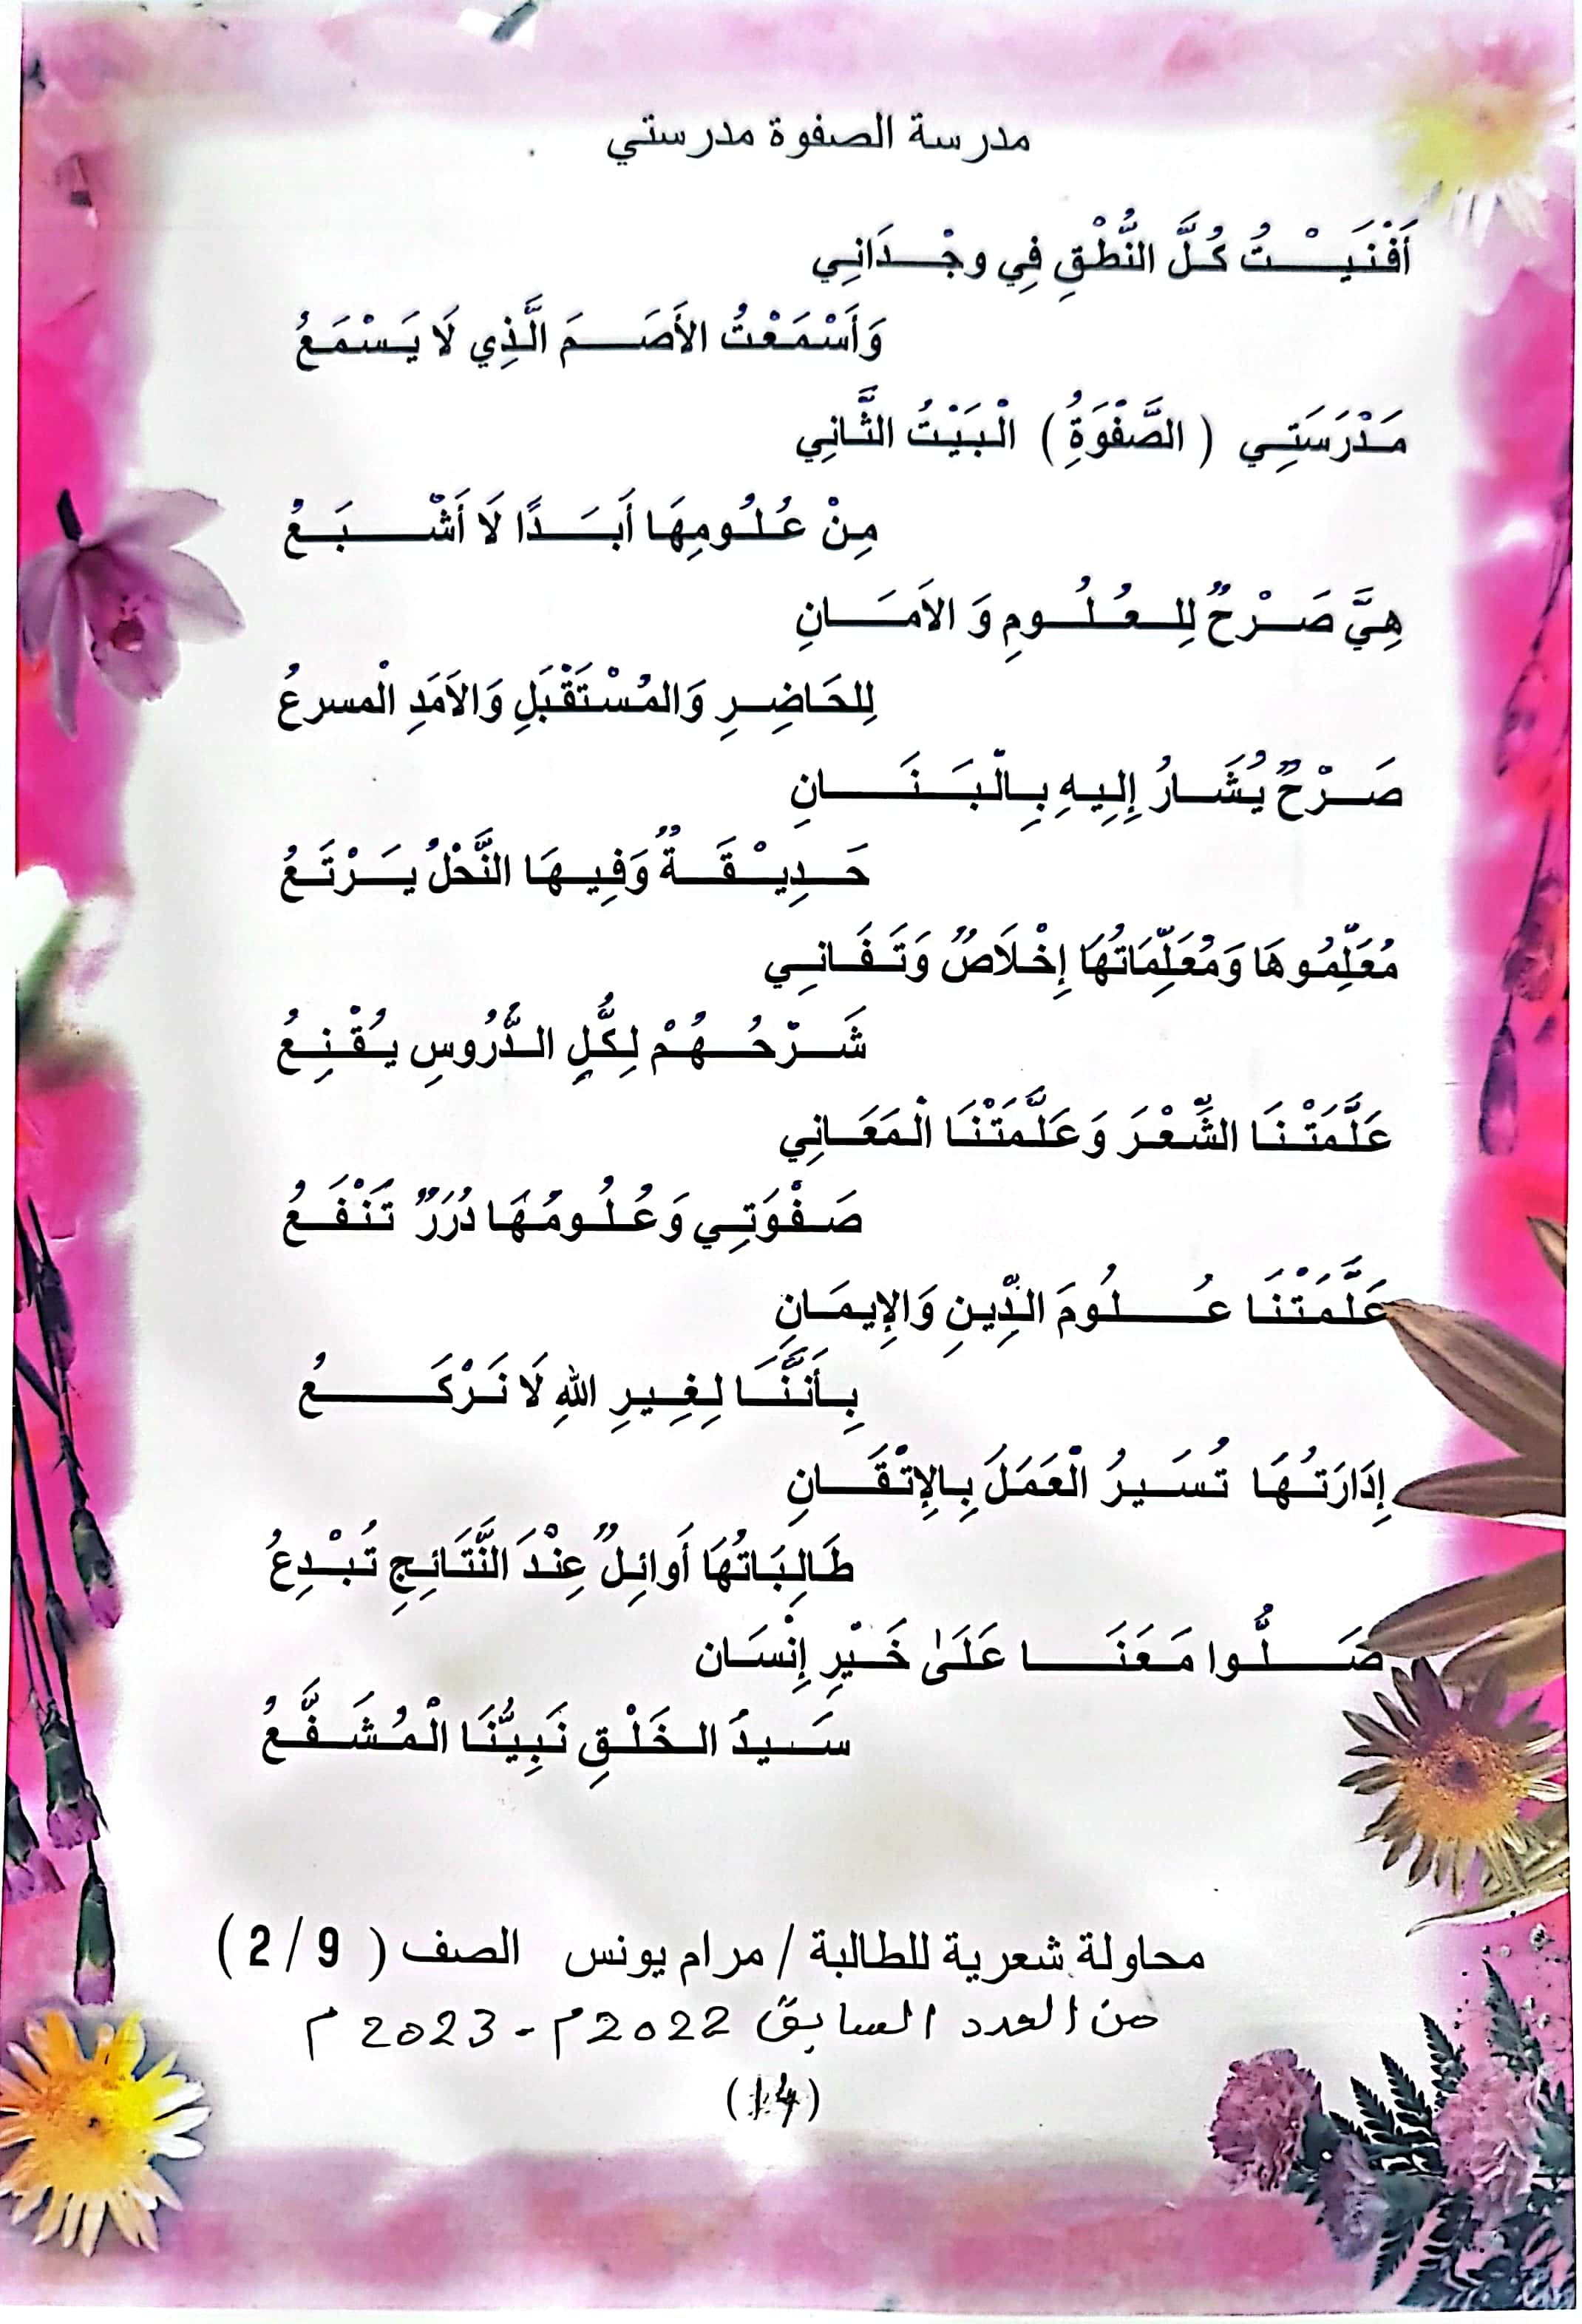 مدرسة الصفوة مدرستي
أَفْنَيْتُ كُلَّ النُّطْقِ فِي وجْدَانِي
وَأَسْمَعْتُ الأَصَمَ الَّذِي لَا يَسْمَعُ
مَدْرَسَتِي ( الصَّفْوَةُِ ) الْبَيْتُ الثَّانِي
مِنْ عُلُومِهَا أَبَدًا لَا أَشْبَعُ
هِيَّ صَرْحٌ لِلعُلُومِ وَ الاَمَانِ
لِلحَاضِرِ وَالمُسْتَقْبَلِ وَالاَمَدِ الْمسرعُ
صَرْحٌ يُشَارُ إِلِيهِ بِالْبَنَانِ
حَدِيْقَةٌ وَفِيهَا النَّحْلُ يَرْتَعُ
مُعَلِّمُوهَا وَمُعَلِّمَاتُهَا إِخْلَاصٌ وَتَفَانِي
شَرْحُهُمْ لِكُلِّ الدُّرُوسِ يُقْنِعُ
عَلَّمَتْنَا الشِّعْرَ وَعَلَّمَتْنَا الْمَعَانِي
صَفْوَتِي وَعُلُومُهَا دُرَرٌ تَنْفَعُ
عَلَّمَتْنَا عُلُومَ الدِّينِ وَالإِيمَانِ
بِأَنَّنَا لِغِيرِ اللهِ لَا نَرْكَعُ
إِدَارَتُهَا تُسَيرُ الْعَمَلَ بِالإِتْقَانِ
طَالِبَاتُهَا أَوائِلٌ عِنْدَ النَّتَائِجِ تُبْدِعُ
صَلُّوا مَعَنَا عَلَىٰ خَيْرِ إِنْسَان
سَيدُ الخَلْقِ نَبِيُّنَا الْمُشَفَّعُ
محاولة شعرية للطالبة / مرام يونس الصف ( 2/9 )
من العدد السابق 2022م - 2023م
(14)